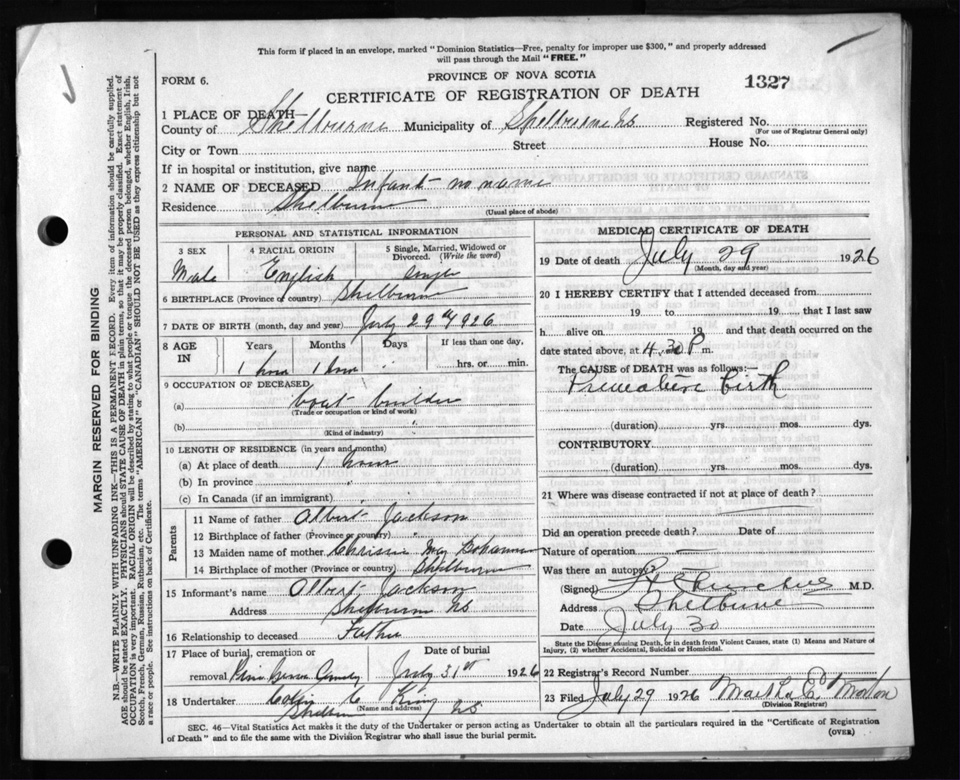 This form if placed in an envelope, marked "Dominion Statistics—Free, penalty for improper use $300," and properly addressed
will pass through the Mail "FREE."
PROVINCE OF NOVA SCOTIA
FORM 6.
1327
CERTIFICATE OF REGISTRATION OF DEATH
1 PLACE OF DEATH—
County of Shelburne Municipality of Shelburne NS Registered No.
(For use of Registrar General only)
City or Town Street House No.
If in hospital or institution, give name
2 NAME OF DECEASED Infant no name
Residence Shelburne
(Usual place of abode)
PERSONAL AND STATISTICAL INFORMATION
3 SEX 4 RACIAL ORIGIN 5 Single, Married, Widowed or
Divorced. (Write the word)
Male English single
6 BIRTHPLACE (Province or country) Shelburne
7 DATE OF BIRTH (month, day and year) July 29th 1926
8 AGE IN Years Months Days If less than one day,
1 hour 1 hour hrs. or min.
9 OCCUPATION OF DECEASED
(a) boat builder
(Trade or occupation or kind of work)
(b)
(Kind of industry)
10 LENGTH OF RESIDENCE (in years and months)
(a) At place of death 1 hour
(b) In province
(c) In Canada (if an immigrant)
Parents
11 Name of father Albert Jackson
12 Birthplace of father (Province or country)
13 Maiden name of mother Chrissie May
14 Birthplace of mother (Province or country) Shelburne
15 Informant's name Albert Jackson
Address Shelburne NS
16 Relationship to deceased Father
17 Place of burial, cremation or Date of burial
removal Pine Grove July 31st 1926
18 Undertaker Colin C King
(Name and address)
Shelburne NS
MEDICAL CERTIFICATE OF DEATH
19 Date of death July 29 1926
(Month, day and year)
20 I HEREBY CERTIFY that I attended deceased from
19 to 19, that I last saw
h alive on 19 and that death occurred on
date stated above, at 4.30 P m.
The CAUSE of DEATH was as follows:—
Premature birth
(duration) yrs. mos. dys.
CONTRIBUTORY
(duration) yrs. mos. dys.
21 Where was disease contracted if not at place of death?
Did an operation precede death? Date of
Nature of operation —
Was there an autopsy?
(Signed) M.D.
Address Shelburne
Date July 30
State the Disease causing Death, or in death from Violent Causes, state (1) Means and Nature of
Injury, (2) whether Accidental, Suicidal or Homicidal.
22 Registrar's Record Number
23 Filed July 29 1926 Martha E Morton
(Division Registrar)
SEC. 46—Vital Statistics Act makes it the duty of the Undertaker or person acting as Undertaker to obtain all the particulars required in the "Certificate of Registration
of Death" and to file the same with the Division Registrar who shall issue the burial permit.
(OVER)
MARGIN RESERVED FOR BINDING
N.B.—WRITE PLAINLY WITH UNFADING INK—THIS IS A PERMANENT RECORD. Every item of information should be carefully supplied.
AGE should be stated EXACTLY. PHYSICIANS should STATE CAUSE OF DEATH in plain terms, so that it may be properly classified. Exact statement of
OCCUPATION is very important. RACIAL ORIGIN will be described by stating to what people or tongue the deceased person belonged, whether English, Irish,
Scotch, French, German, Russian, Ruthenian, etc. The terms "AMERICAN" or "CANADIAN" SHOULD NOT BE USED as they express citizenship but not
a race or people. See instructions on back of Certificate.